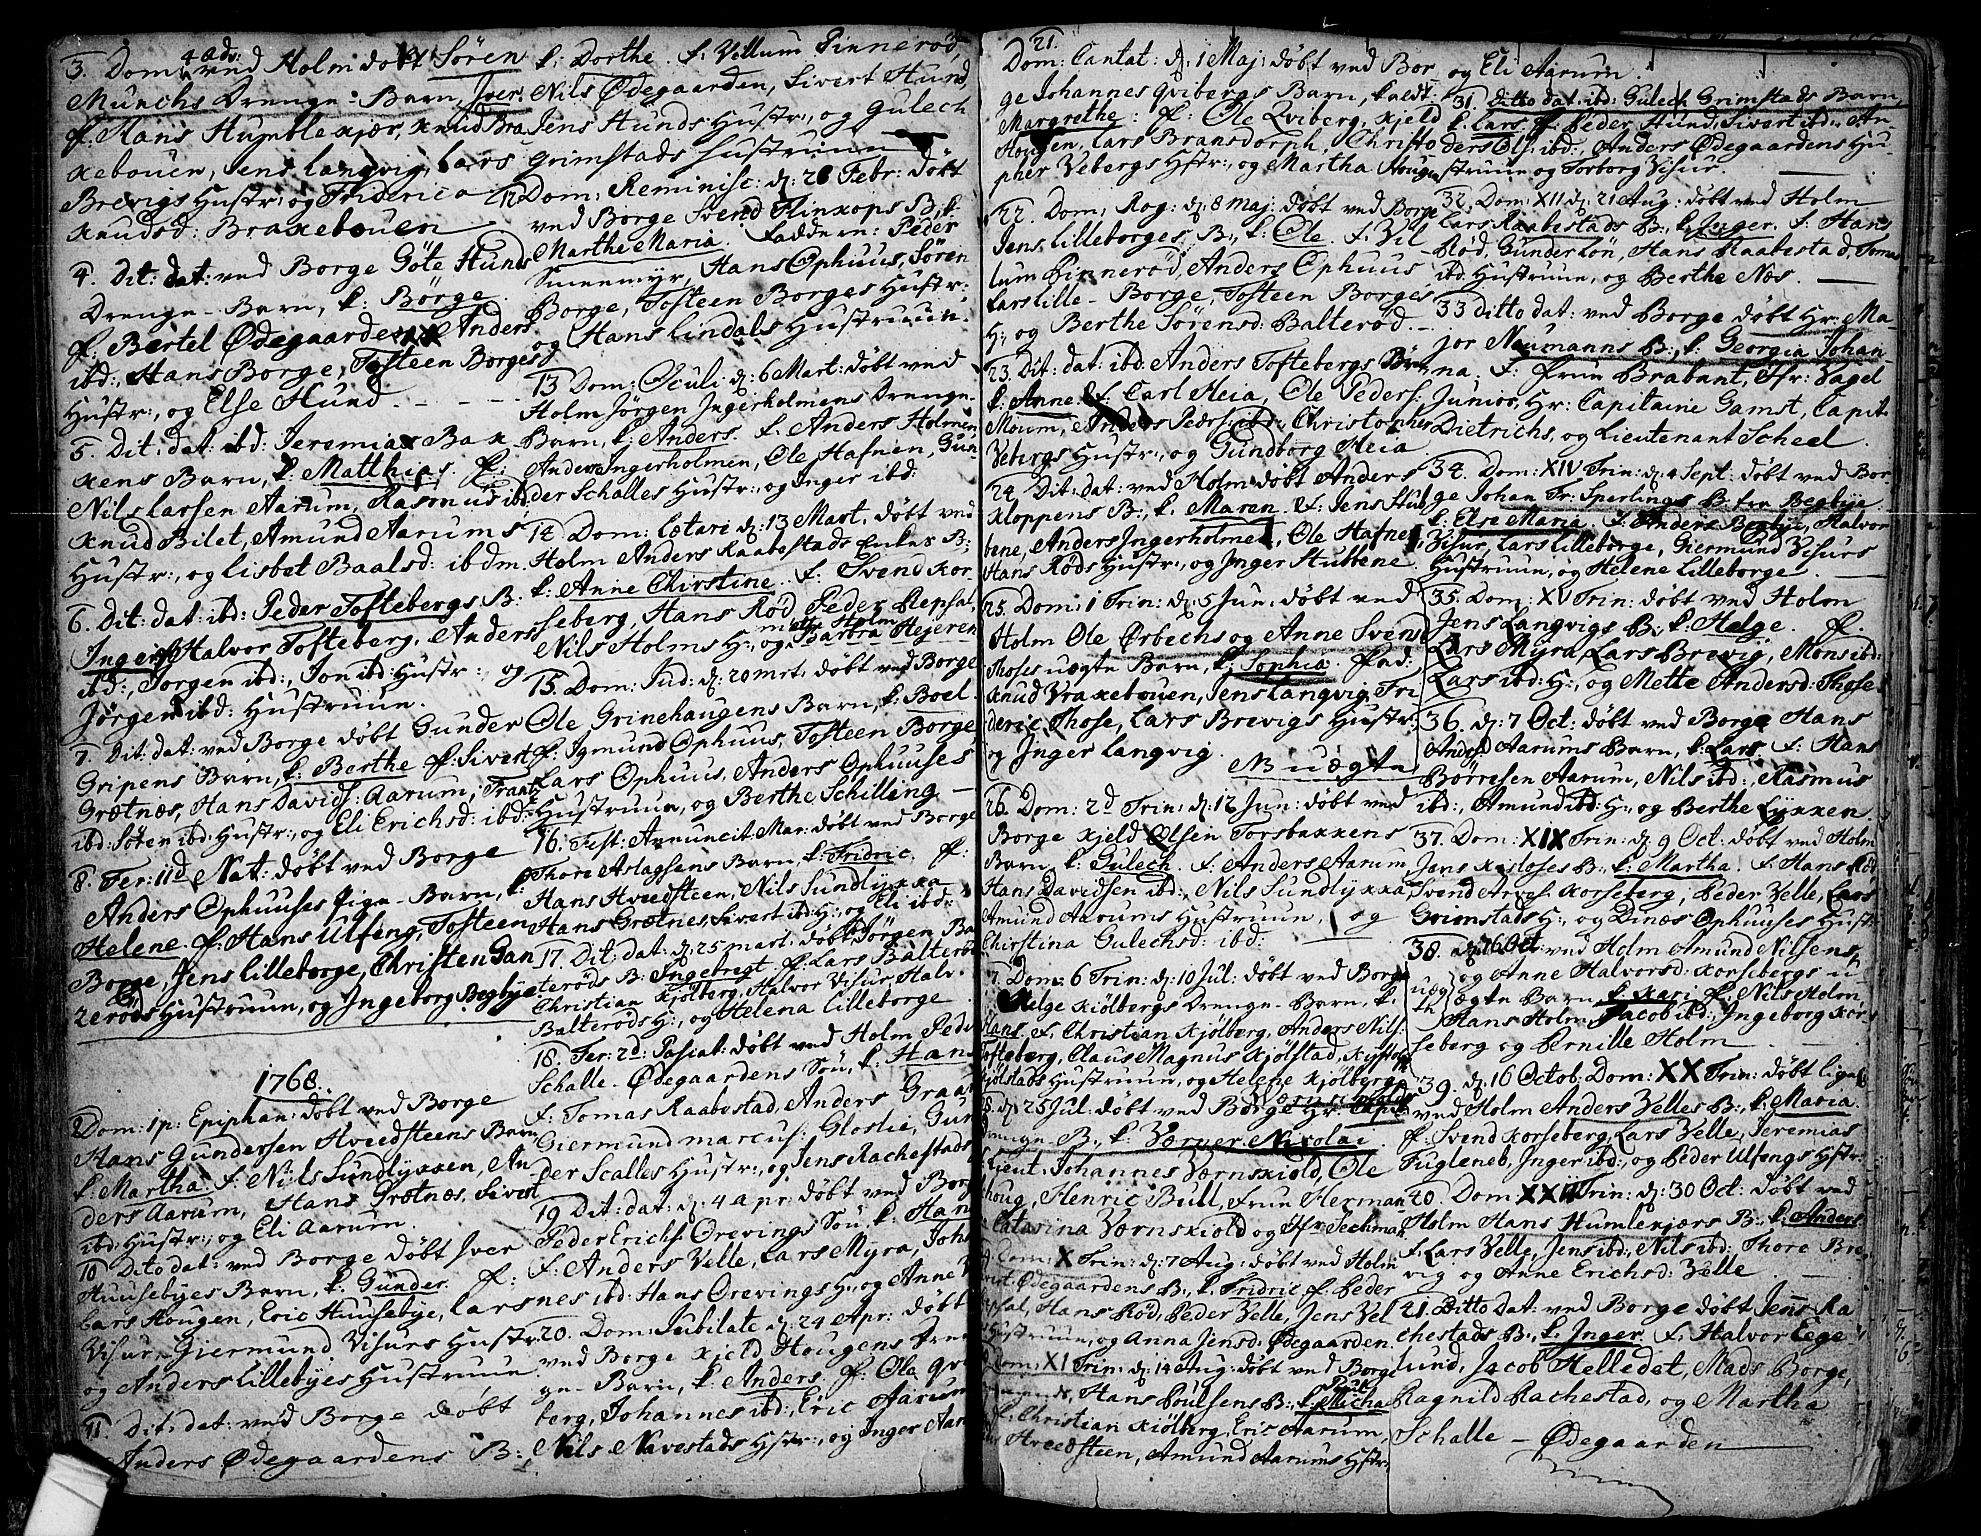 3. Dom 4 Adv: ved Holm døbt Søren
Munchs Drenge-Barn, Iver.
f. Hans Humblekjær, Knud Bra
xebouen, Jens Langvig, Lars
Brevigs Hustr: og Friderica
Knudsd: Braxebouen
4. Dit: dat: ved Borge Göte Hunds
Drenge-Barn, k: Börge.
f. Bertel Ødegaarden, Anders
ibd:, Hans Borge, Tosteen Borges
Hustr:, og Else Hund
5. Dit: dat: ibd: Jeremias Bax
kens Barn, k: Matthias. f:
Nils Larsen Aarum, Rasmus ibd:
Knud Bilet, Amund Aarums
Hustr:, og Lisbet Baalsd: ibdm.
6. Dit: dat: ibd: Peder Toftebergs B:
Inger f. Halvor Tofteberg, Anders
ibd:, Jorgen ibd:, Jon ibd: Hustr:, og
Jörgen ibd: Hustruun.
7. Dit: dat: ved Borge døbt Gunder
Gripens Barn, k: Berthe f. Sivert
Grætnæs, Hans Davids: Aarum, Frantz
ibd: Søren ibd: Hustr:, og Eli Erichsd: ibd:
8. Fer: IId Nat: døbt ved Borge
Anders Ophuuses Pige-Barn, k:
Helene. f. Hans Ulfeng, Tosteen
Borge, Jens Lilleborge, Christen Gan
zeröds Hustruun, og Ingeborg Begbye
1768.
Dom: 1 p: Epiphan: døbt ved Borge
Hans Gundersen Hveedsteens Barn
k. Martha. f. Nils Sundlyxxen, An
ders Aarum, Hans Grætnes, Sivert
ibd: Hustr:, og Eli Aarum.
10 Dito dat: ved Borge døbt Iver
Huusebyes Barn, k. Gunder. f:
Lars Hougen, Eric Huusebye, Lars
Visur, Giermund Visurs Hustr:
og Anders Lillebyes Hustruun
11. Dit: dat: ved Borge døbt
Anders Ødegaardens B:,
k: Dorthe. f. Villum Pinnerød,
Nils Ødegaarden, Sivert Hund,
Jens Hunds Hustr:, og Gulech
Grimstads Hustruun
12 Dom: Reminisc: d: 28 Febr: døbt
ved Borge Svend Flinxops B, k.
Marthe Maria. Faddere: Peder
Smeemyr, Hans Ophuus, Søren
Borge, Tosteen Borges Hustr:
og Hans Lindals Hustruun.
13 Dom: Oculi d: 6 Mart: døbt ved
Holm Jörgen Ingerholmens Drenge-
Barn, k. Anders. f. Anders Holmen
Anders Ingerholmen, Ole Hafnen, Gun
der Schalles Hustr:, og Inger ibd:
14. Dom: Lætare d: 13 Mart. døbt ved
Holm Anders Raabestads Enkes B:
k. Anne Chirstine. f: Svend Kor
seberg, Hans Rød, Peder Repsal,
Nils Holms H:, og Mette Holm Barbra Hejeren
15. Dom: Jud: d: 20 mrt: døbt ved Borge
Ole Grinehaugens Barn, k. Boel.
f. Igmund Ophuus, Tosteen Borge
Lars Ophuus, Anders Ophuuses
Hustruun, og Berthe Schilling
16. Fest: Annunciat Mar: døbt ved Borge
Thore Aslagsens Barn, k. Fridric. f:
Hans Hveedsteen, Nils Sundlyxxa
Hans Grætnes, Sivert ibd: H:, og Eli ibd:
17. Dit: dat: d: 25 mart: døbt Jørgen Ba
terøds B: Ingebregt f. Lars Balterød
Christian Kjölberg, Halvor Visur, Halv.
Balterøds H:, og Helena Lilleborge
18. Fer: 2d: Pascat: døbt ved Holm Peder
Schalle-Ødegaardens Søn, k. Hans
f. Tomas Raabestad, Anders Graa
Giermund marcus: Gloslie, Gun
der Scalles Hustr:, og Jens Rachestads
19 Dit: dat: d: 4 apr: døbt ved Borge
Peder Erichs: Orevings Søn k. Hans
f. Anders Velle, Lars Myra, Joh
nes ibd: Hans Orevings H:, og Anne
20. Dom: Jubilate d: 24 Apr: døbt
ved Borge Kjeld Hougens Dren
ge-Barn, k. Anders. f: Ole Qvi
berg, Johannes ibd:, Eric Aarum
Nils Navestads Hstr:, og Inger Aar
21.
Dom: Cantat: d: 1 Maj: døbt ved Bor
ge Johannes Qvibergs Barn, kaldt
Margrethe: f: Ole Qviberg, Kjeld
Hougen, Lars Bransdorph, Christo
pher Vebergs Hstr:, og Martha Hougen
22. Dom: Rog: d: 8 Maj: døbt ved Borge
Jens Lilleborges B:, k. Ole. f. Vil
lum Pinnerød, Anders Ophuus
Lars Lille-Borge, Tosteen Borges
H:, og Berthe Sørensd: Balterød.
23. Dit: dat: ibd: Anders Toftebergs Barn
k. Anne f. Carl Heia, Ole Peders:
Moum, Anders Peders: ibd: Christopher
Vebergs Hustr:, og Gundborg Heia
24. Dit: dat: ved Holm døbt Anders
Kloppens B:, k. Maren. f: Jens Stub
bene, Anders Ingerholmen, Ole Hafnen,
Hans Røds Hustr:, og Inger Stubbene.
25. Dom: 1 Trin: d: 5 Jun: døbt ved
Holm Ole Ørbechs og Anne Svends:
Thoses uægte Barn, k. Sophia. Fad:
Knud Vraxebouen, Jens Langvig, Fri
deric Those, Lars Brevigs Hustr:
og Inger Langvig.
NB uægte
26. Dom: 2d Trin: d: 12 Jun: døbt ved
Borge Kjeld Olsen Torsbaxxens
Barn, k: Gulech. f. Anders Aarum
Hans Davidsen ibd:, Nils Sundlyxxa,
Amund Aarums Hustruun, og
Chirstina Gulechsd: ibd:
7. Dom: 6 Trin: d: 10 Jul: døbt ved Borge
Helge Kiölbergs Drenge-Barn, k.
Hans. f. Christian Kjølberg, Anders Nils:
Tofteberg, Claus Magnus Kjølstad,
Kjølstads Hustruun, og Helene Kjölberg
28. d: 25 Jul: døbt ved Borge Hr: Capit:
Drenge B:, k. Værner Nicolai.
Lieut. Johannes Værnskiold, Ole
houg, Henric Bull, Frue Herman
Catarina Værnskiold og Jfr Techman
Dom: X Trin: d: 7 Aug: døbt ved Holm
Ødegaardens B:, k. Fridric f. Peder
sal, Hans Rød, Peder Velle, Jens Vel
Hustruun, og Anna Jensd: Ødegaarden
Dom: XI Trin: d: 14 Aug: døbt ved Borge
Hans Poulsens B:, k. Micha
f. Christian Kiölberg, Eric Aarum,
Hveedsteen, Amund Aarums Hstr:,
og Eli Aarum.
31. ditto dat: ibd: Gulech Grimstads Barn,
k. Lars. f. Peder Hund, Sivert ibd:, An
ders Ols: ibd:, Anders Ødegaardens Hu
struun og Torborg Visur.
32. Dom: XII d: 21 Aug: døbt ved Holm
Lars Raabestads B:, k. Inger. f. Hans
Rød, Gunder Løn, Hans Raabestad, Tomas
ibd: Hustruun, og Berthe Næs.
33 ditto dat: ved Borge døbt Hr: Ma
jor Neumanns B:, k. Georgia Johan
na. f. Frue Brabant, Jfr: Vagel
Junior, Hr: Capitaine Gamst, Capit:
Dietrichs, og Lieutenant Scheel.
34. Dom: XIV Trin: d: 4 Sept: døbt ved Bor
ge Johan Fr: Sperlings B. fra Begbye
k. Else Maria. f. Anders Begbye, Halvor
Visur, Lars Lilleborge, Giermund Visurs
Hustruun, og Helene Lilleborge.
35. Dom: XV Trin: døbt ved Holm
Jens Langvigs B: k. Helge. f:
Lars Myra, Lars Brevig, Mons ibd:
Lars ibd: H:, og Mette Andersd: Those.
36. d: 7 Oct: døbt ved Borge Hans
Anders Aarums Barn, k: Lars. f: Hans
Børresen Aarum, Nils ibd:, Rasmus
ibd:, Amund ibd: H:, og Berthe Lyxxen.
37. Dom: XIX Trin: d: 9 Oct: døbt ved Holm
Jens Kisloses B:, k. Martha. f. Hans Rød
Svend Arves: Korseberg, Peder Velle, Lars
Grimstads H:, og Dines Ophuuses Hustr:
38. d: 16 Oct: ved Holm Amund Nilsens
og Anne Halvorsd: Korsebergs u
uæg
te
ægte Barn, k. Kari f: Nils Holm,
Hans Holm, Jacob ibd:, Ingeborg Kor
seberg og Pernille Holm
39. d: 16 Octob: Dom: XX Trin: døbt lige
ved Holm Anders Velles B:, k. Maria.
f: Svend Korseberg, Lars Velle, Jeremias
Fugleneb, Inger ibd:, og Peder Ulfengs Hstr:
40. Dom: XXII Trin: d: 30 Oct: døbt ved
Holm Hans Humlekjærs B:, k. Anders
f. Lars Velle, Jens ibd:, Nils ibd: Thore Bre
vig og Anne Erichsd: Velle
41. Ditto dat: ved Borge døbt Jens Ra
chestads B:, k. Inger. f. Halvor Ege
lund, Jacob Helledet, Mads Borge,
Ragnild Rachestad, og Martha
Schalle-Ødegaarden